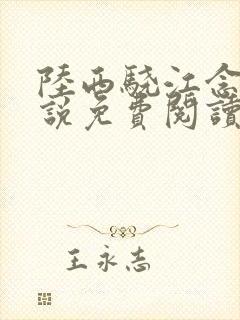 陸西驍江念
說免費閱讀
王永志